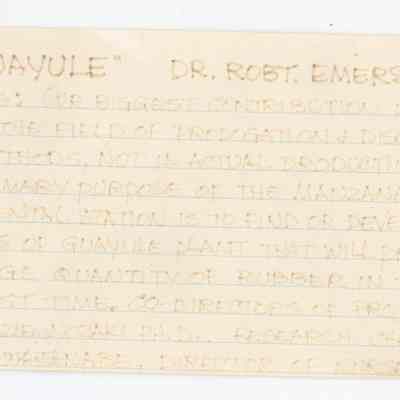 UAYULE" DR. ROBT. EMERS
S: OUR BIGGEST CONTRIBUTION
THE FIELD OF PROPOGATION & DISC
THODS, NOT IS ACTUAL PRODUCTI
MARY PURPOSE OF THE MANZANA
ENTAL STATION IS TO FIND OR DEVE
S OF GUAYULE PLANT THAT WILL
GE QUANTITY OF RUBBER IN
EST TIME. CO-DIRECTORS OF PRO
PH.D., RESEARCH
WATANABE, DIRECTOR OF NURS